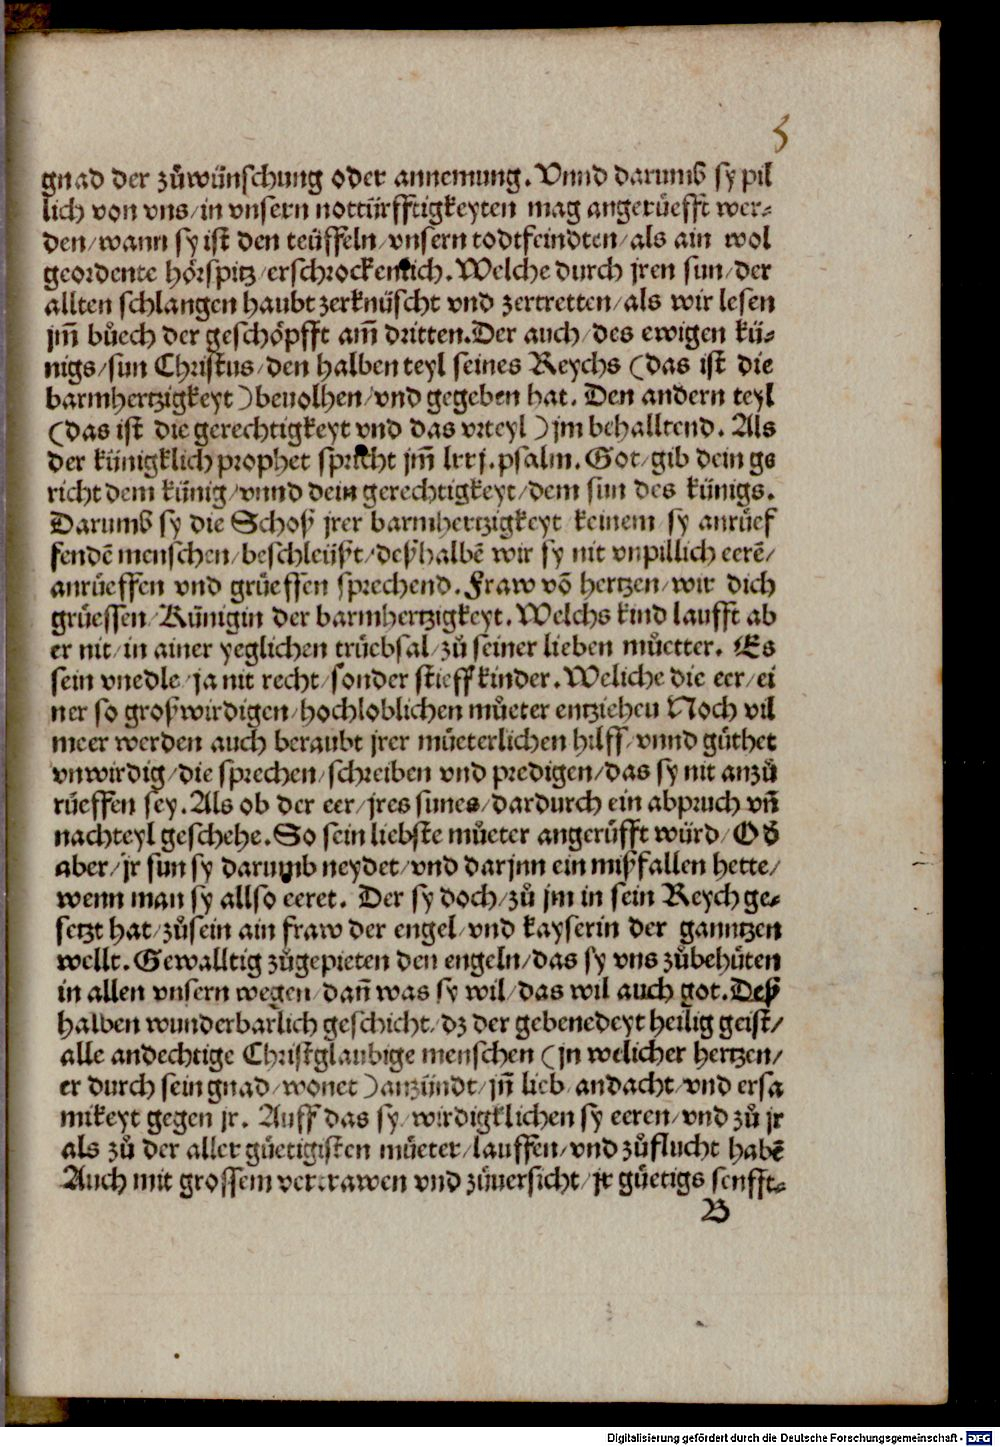 5
gnad der zůwünschung oder annemung. Vnnd darumb sy pil
lich von vns/in vnsern nottürfftigkeyten mag angerüefft wer⸗
den/wann sy ist den teüffeln/vnsern todtfeindten/als ain wol
geordente hörspitz/erschrockenlich. Welche durch jren sun/der
allten schlangen haubt zerknüscht vnd zertretten/als wir lesen
jm̄ bůech der geschöpfft am̄ dritten. Der auch/des ewigen kü⸗
nigs/sun Christus/den halben teyl seines Reychs (das ist die
barmhertzigkeyt) beuolhen/vnd gegeben hat. Den andern teyl
(das ist die gerechtigkeyt vnd das vrteyl) jm behalltend. Als
der künigklich prophet spricht jm̄ lxxj. psalm. Got/gib dein ge
richt dem künig/vnnd dein gerechtigkeyt/dem sun des künigs.
Darumb sy die Schoß jrer barmhertzigkeyt keinem sy anrüef
fendē menschen/beschleüßt/deßhalbē wir sy nit vnpillich eerē/
anrüeffen vnd grüeffen sprechend. Fraw vō hertzen/wir dich
grüessen/Künigin der barmhertzigkeyt. Welchs kind laufft ab
er nit/in ainer yeglichen trüebsal/zů seiner lieben můetter. Es
sein vnedle/ja nit recht/sonder stieffkinder. Weliche die eer/ei
ner so großwirdigen/hochloblichen můeter entziehen Noch vil
meer werden auch beraubt jrer müeterlichen hilff/vnnd güthet
vnwirdig/die sprechen/schreiben vnd predigen/das sy nit anzů
rüeffen sey. Als ob der eer/jres sunes/dardurch ein abpruch vn̄
nachteyl geschehe. So sein liebste můeter angerüfft würd/Ob
aber/jr sun sy darumb neydet/vnd darjnn ein mißfallen hette/
wenn man sy allso eeret. Der sy doch/zů jm in sein Reych ge⸗
setzt hat/zůsein ain fraw der engel/vnd kayserin der ganntzen
wellt. Gewalltig zůgepieten den engeln/das sy vns zůbehüten
in allen vnsern wegen/dan̄ was sy wil/das wil auch got. Deß
halben wunderbarlich geschicht/dz der gebenedeyt heilig geist/
alle andechtige Christglaubige menschen (jn welicher hertzen/
er durch sein gnad/wonet) anzündt/jn̄ lieb/andacht/vnd ersa
mikeyt gegen jr. Auff das sy/wirdigklichen sy eeren/vnd zů jr
als zů der aller güetigisten müeter/lauffen/vnd zůflucht habē
Auch mit grossem vertrawen vnd zůuersicht/jr güetigs senfft⸗
B
Digitalisierung gefördert durch die Deutsche Forschungsgemeinschaft - DFG